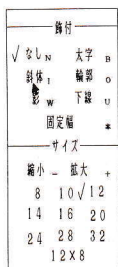 飾付
√ なし N 太字 B
斜体 I 輪郭 O
影 W 下線 U
固定幅 *
サイズ
縮小 - 拡大 +
8 10 √12
14 16 20
24 28 32
12×8